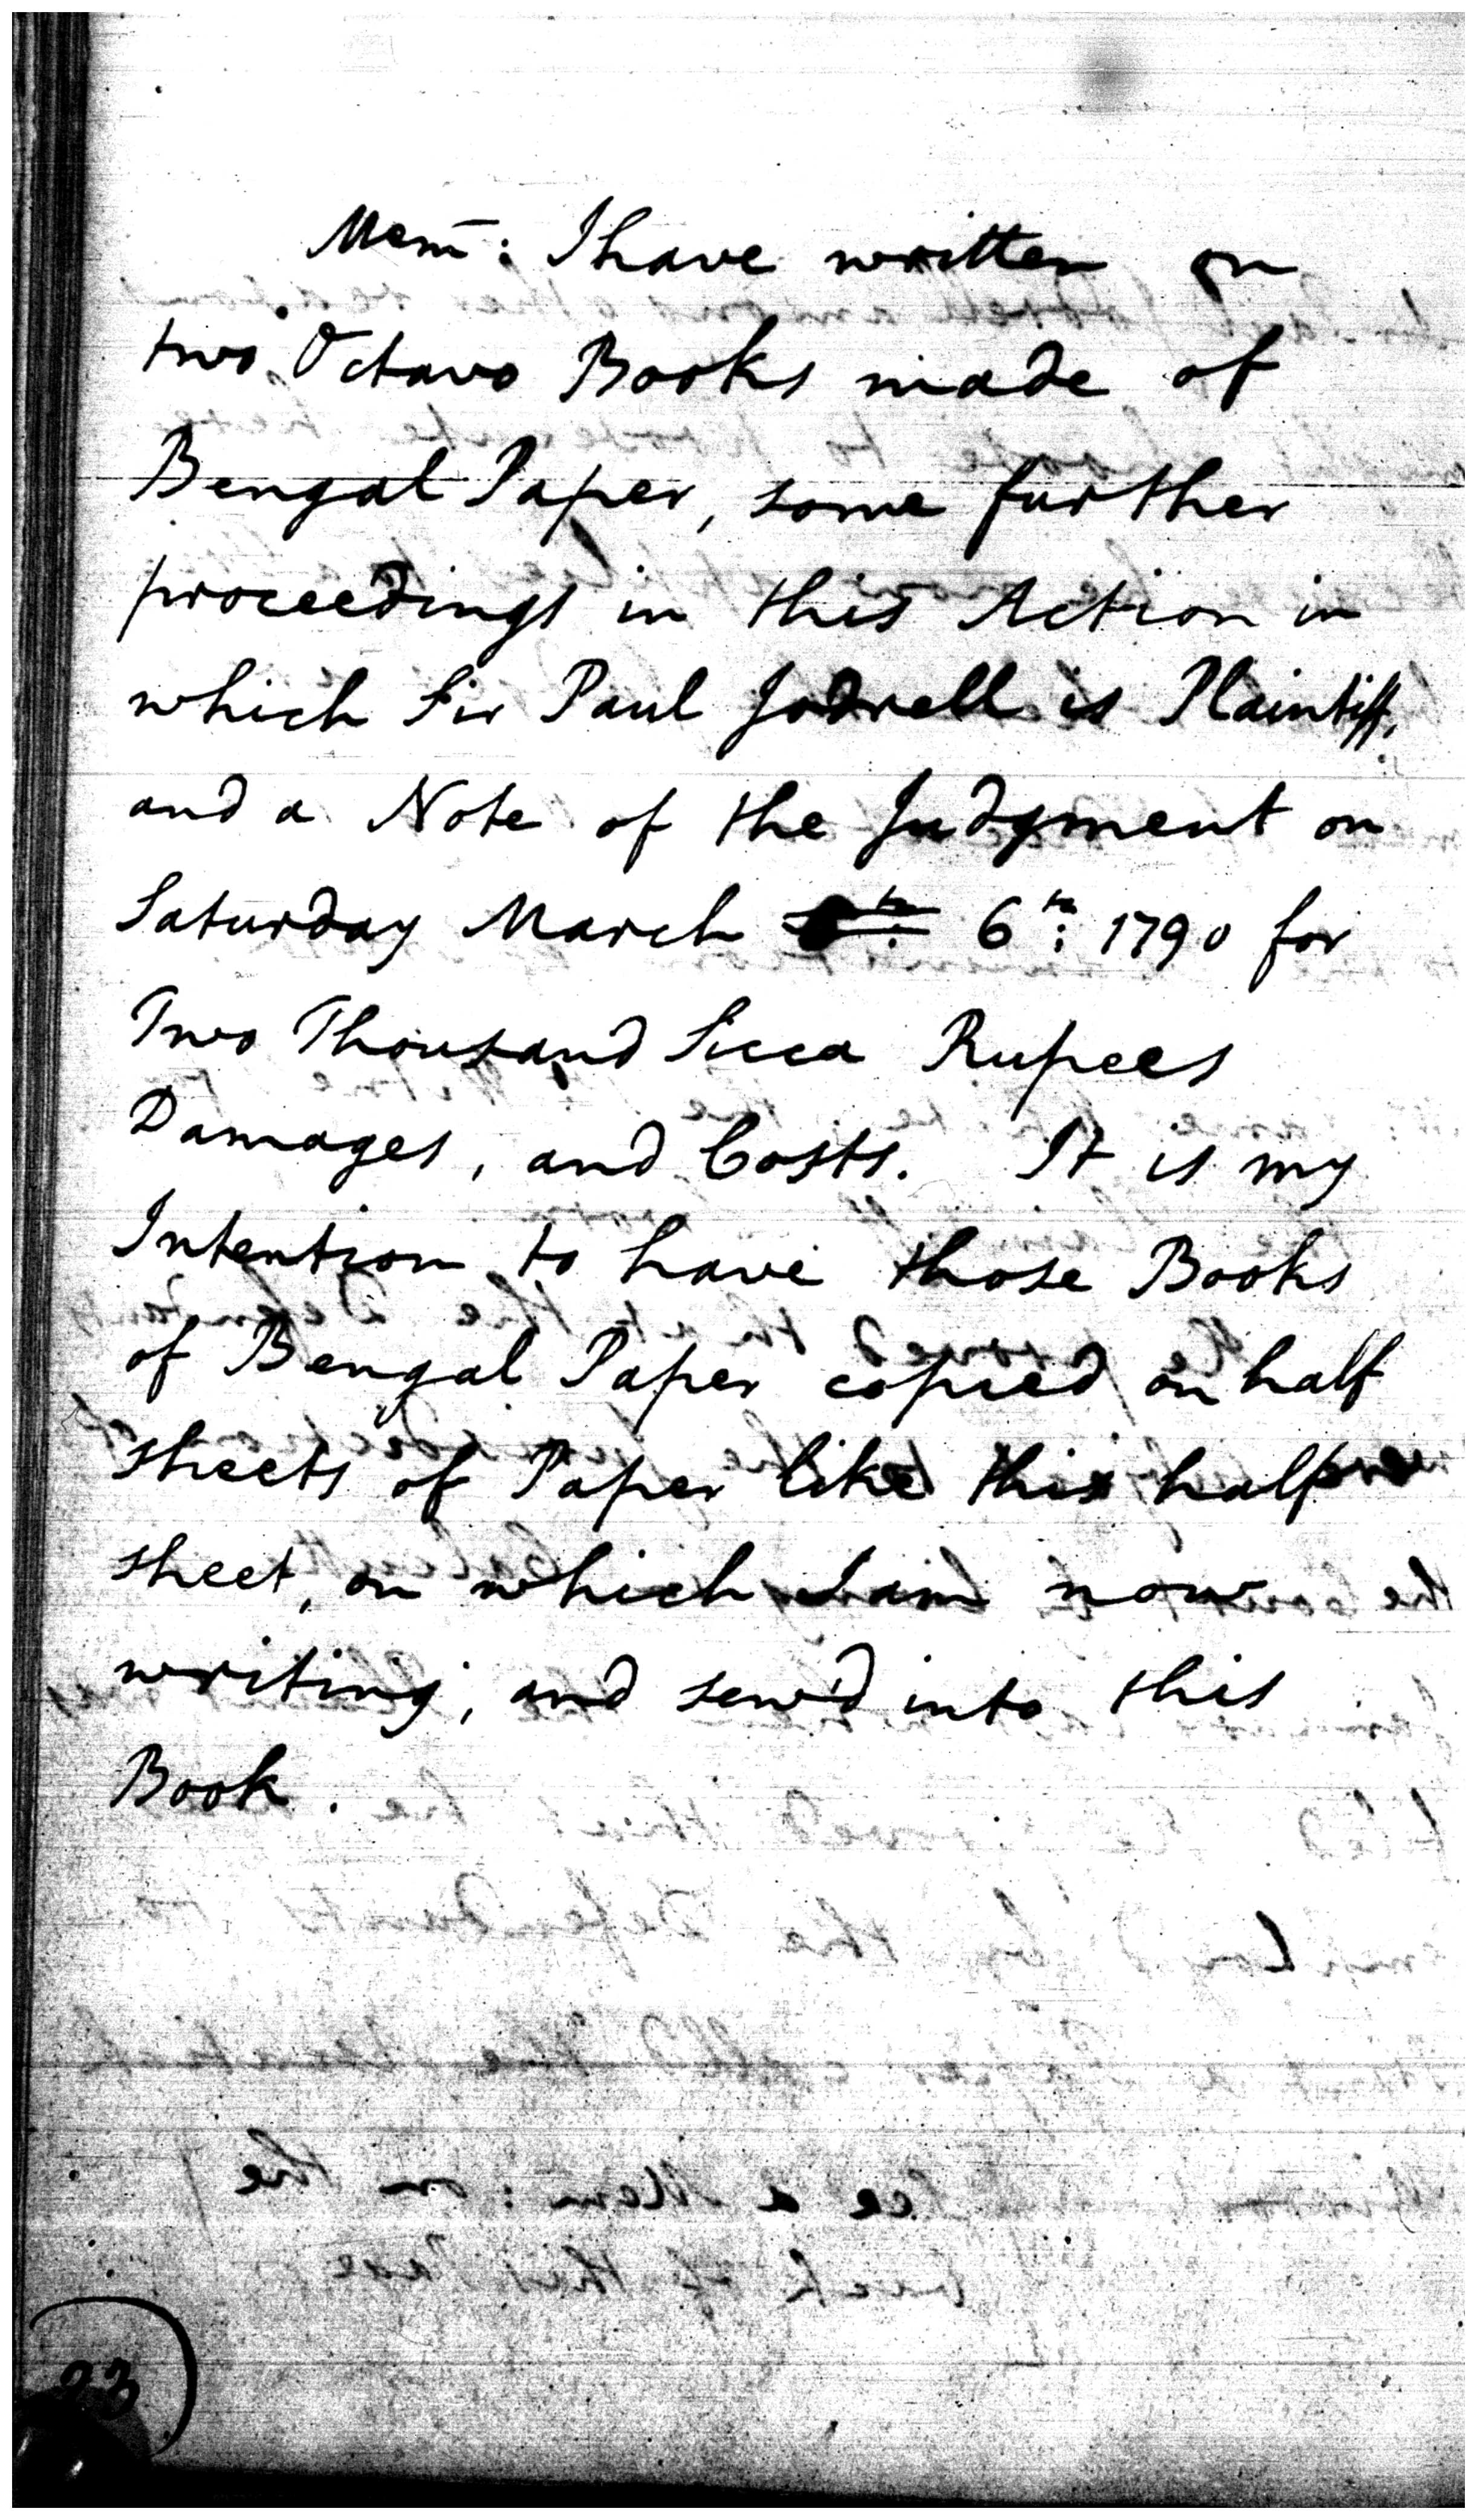 Mem̄: I have written on
two Octavo Books made of
Bengal Paper, some further
proceedings in this Action in
which Sir Paul Jodrell is Plaintiff,
and a Note of the Judgment on
Saturday March 6th: 1790 for
Two Thousand Sicca Rupees
Damages, and Costs. It is my
Intention to have those Books
of Bengal Paper copied on half
sheets of Paper like this half
sheet, on which I am now
writing, and sew'd into this
Book.
23